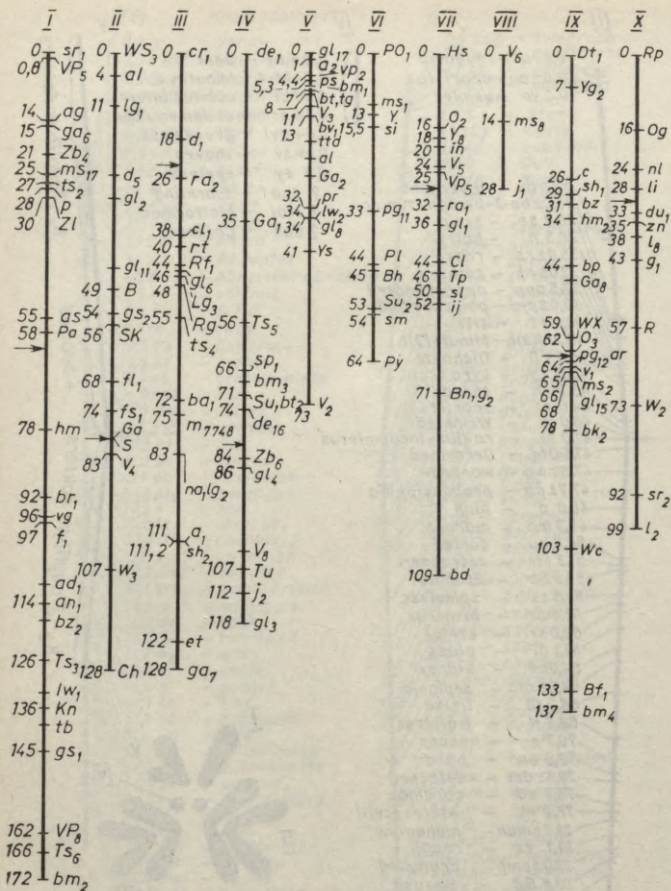 I
0 sr₁
0,8 VP₅
14 ag
15 ga₆
21 Zb₄
25 ms₁₇
27 ts₂
28 P
30 Zl
55 as
58 Pa
78 hm
92 br₁
96 vg
97 f₁
ad₁
114 an₁
bz₂
126 Ts₃
lw₁
136 Kn
tb
145 gs₁
162 VP₈
166 Ts₆
172 bm₂
II
0 WS₃
4 al
11 lg₁
d₅
gl₂
gl₁₁
49 B
54 gs₂
56 SK
68 fl₁
74 fs₁
Ga
S
83 V₄
107 W₃
128 Ch
III
0 cr₁
18 d₁
26 ra₂
38 cl₁
40 rt
44 Rf₁
46 gl₆
48 Lg₃
Rg
55 ts₄
72 ba₁
75 m₇₇₄₈
83 na₁lg₂
111 a₁
111,2 sh₂
122 et
128 ga₇
IV
0 de₁
35 Ga₁
56 Ts₅
66 sp₁
bm₃
71 Su,bt₂
74 de₁₆
84 Zb₆
86 gl₄
V₈
107 Tu
112 j₂
118 gl₃
V
0 gl₁₇
1 a₂ vp₂
4,4 ps
5,3 bm₁
7 bt,tg
8 V₃
11 bv₁
13 ttd
al
Ga₂
32 pr
34 lw₂
34 gl₈
41 Ys
73 V₂
VI
0 PO₁
ms₁
13 Y
15,5 si
33 pg₁₁
44 Pl
45 Bh
53 Su₂
54 sm
64 Py
VII
0 Hs
16 O₂
18 Y₈
20 in
24 V₅
25 Vp₅
32 ra₁
36 gl₁
44 Cl
46 Tp
50 sl
52 ij
71 Bn,g₂
109 bd
VIII
0 V₆
14 ms₈
28 j₁
IX
0 Dt₁
7 Yg₂
26 c
29 sh₁
31 bz
34 hm₂
44 bp
Ga₈
59 WX
62 O₃
pg₁₂ ar
64 v₁
65 ms₂
66 gl₁₅
68
78 bk₂
103 Wc
133 Bf₁
137 bm₄
X
0 Rp
16 Og
24 nl
28 li
33 du₁
35 zn
38 l₈
43 g₁
57 R
73 W₂
92 sr₂
99 l₂